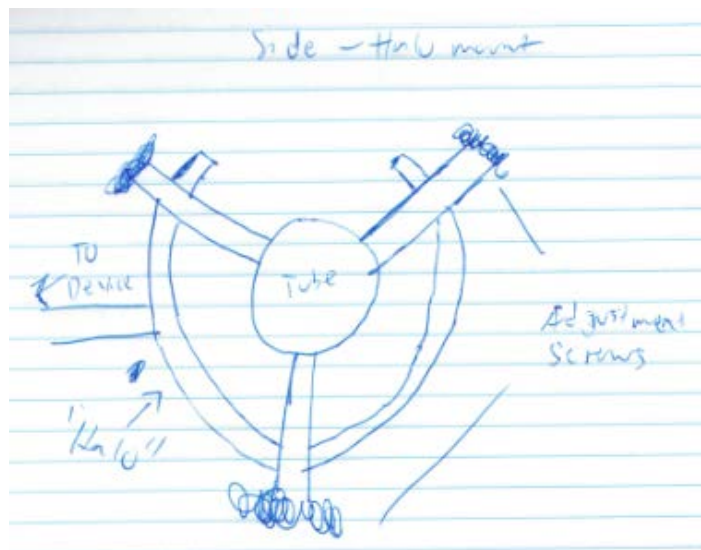 Side - Halo mount
To
Device
Tube
Adjustment
Screws
"Halo"